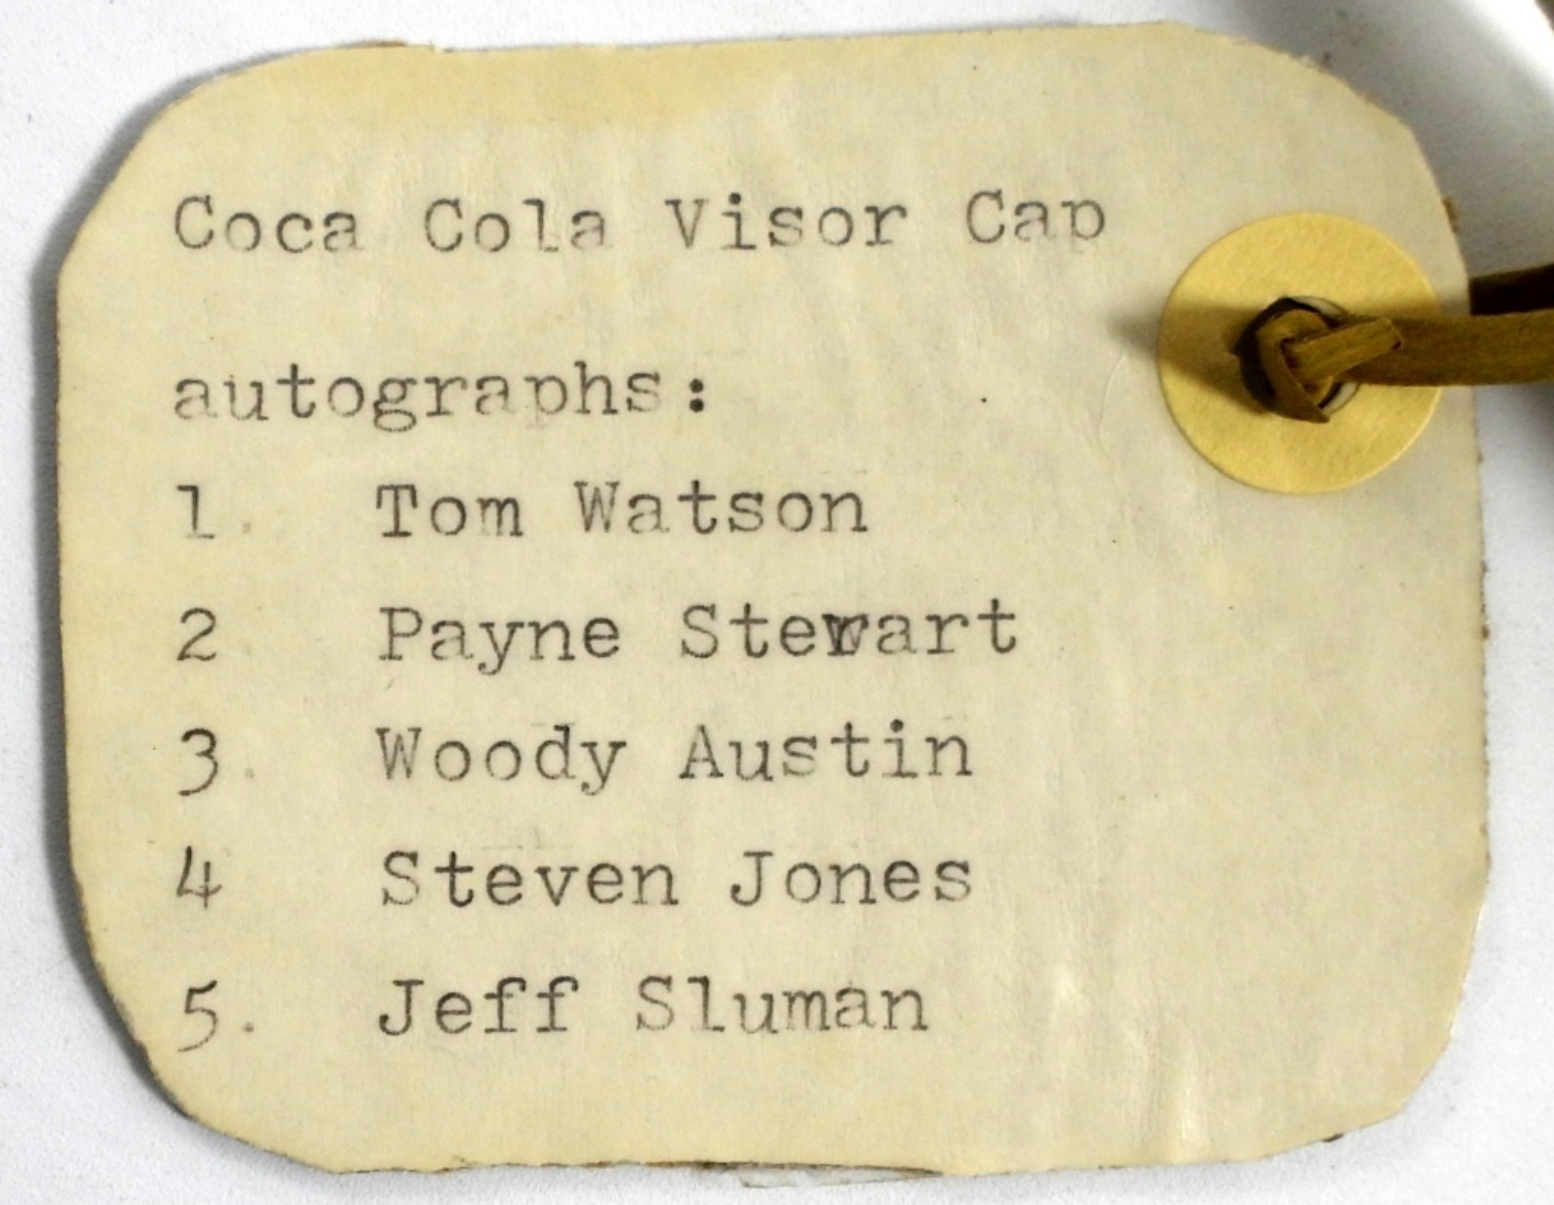 Coca Cola Visor Cap
autographs:
1. Tom Watson
2. Payne Stewart
3. Woody Austin
4 Steven Jones
5. Jeff Sluman